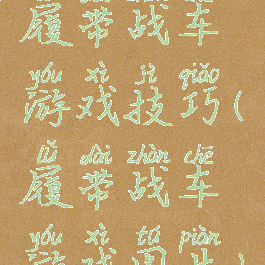 履带战车
yóu xì jì qiǎo
游戏技巧(
lǚ dài zhàn chē
履带战车
yóu xì tú piàn
游戏图片)